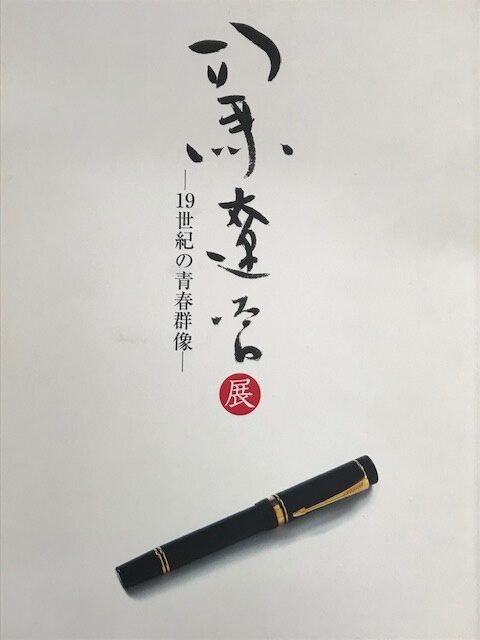 司馬遼太郎
展
―19世紀の青春群像―